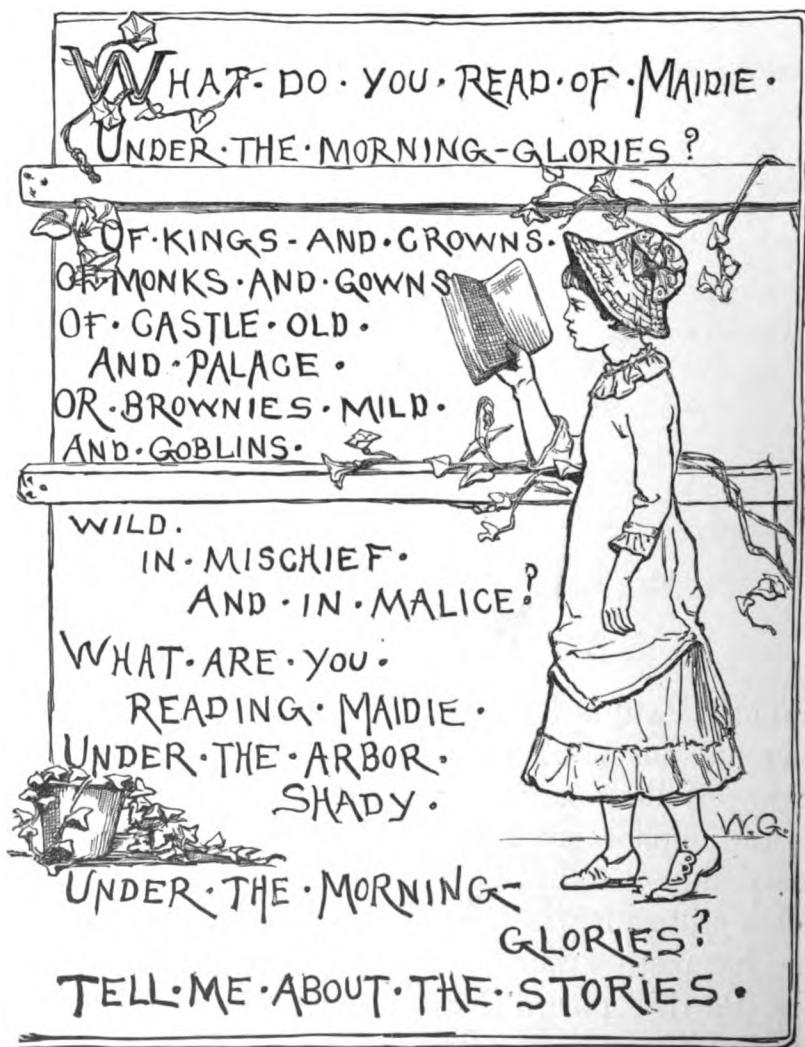 WHAT · DO · YOU · READ · OF · MAIDIE ·
UNDER · THE · MORNING-GLORIES?
OF · KINGS - AND · CROWNS ·
OF · MONKS · AND · GOWNS
OF · CASTLE · OLD ·
AND · PALACE ·
OR · BROWNIES · MILD ·
AND · GOBLINS ·
WILD.
IN · MISCHIEF ·
AND · IN · MALICE?
WHAT · ARE · YOU ·
READING · MAIDIE ·
UNDER · THE · ARBOR ·
SHADY ·
W.G.
UNDER · THE · MORNING-
GLORIES?
TELL · ME · ABOUT · THE · STORIES ·